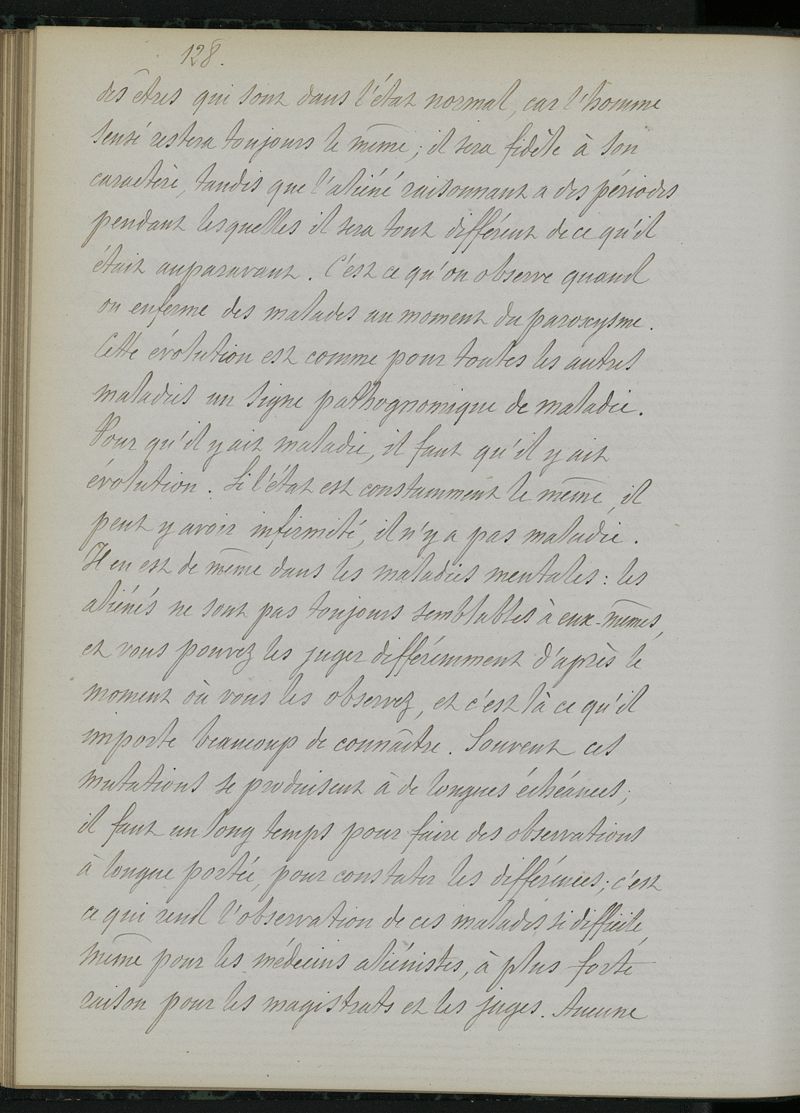 128.
des êtres qui sont dans l'état normal, car l'homme
sensé restera toujours le même ; il sera fidèle à son
caractère, tandis que l'aliéné raisonnant a des périodes
pendant lesquelles il sera tout différent de ce qu'il
était auparavant. C'est ce qu'on observe quand
on enferme des malades au moment du paroxysme.
Cette évolution est comme pour toutes les autres
maladies un signe pathognomique de maladie.
Pour qu'il y ait maladie, il faut qu'il y ait
évolution. Si l'état est constamment le même, il
peut y avoir infirmité, il n'y a pas maladie.
Il en est de même dans les maladies mentales : les
aliénés ne sont pas toujours semblables à eux-mêmes,
et vous pouvez les juger différemment d'après le
moment où vous les observez, et c'est là ce qu'il
importe beaucoup de connaître. Souvent ces
mutations se produisent à de longues échéances ;
il faut un long temps pour faire des observations
à longue portée, pour constater les différences ; c'est
ce qui rend l'observation de ces malades si difficile,
même pour les médecins aliénistes, à plus forte
raison pour les magistrats et les juges. Aucune